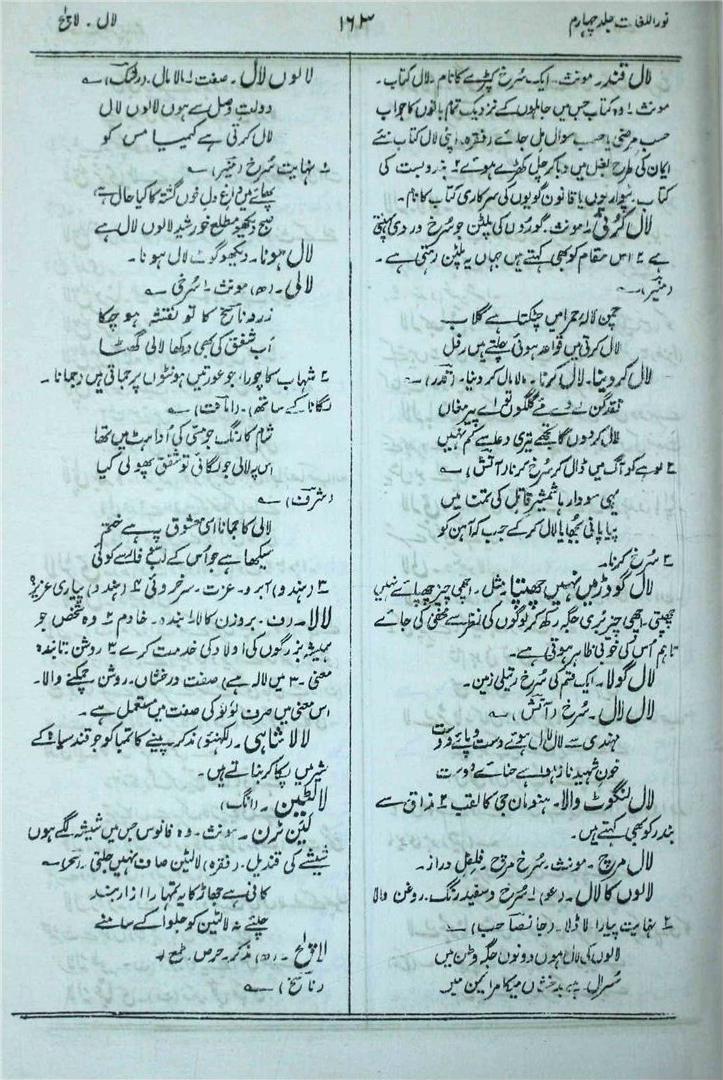 نور اللغات جلد چہارم
۱۶۳
لال ۔ لالچ
لال قند ۔ مونث ۔ ایک سُرخ کپڑے کا نام ۔ لال کتاب ۔
مونث ۱ وہ کتاب جس میں جاہلوں کے نزدیک تمام باتوں کا جواب
حسب مرضی یا حسب سوال مل جائے (فقرہ) اپنی لال کتاب نئے
ایمان کی طرح بغل میں دباکر چل کھڑے ہوئے ۲ بندوبست کی
کتاب ۔ پٹواریوں یا قانون گویوں کی سرکاری کتاب کا نام ۔
لال کُرتی ۱ مونث ۔ گوروں کی پلٹن جو سُرخ وردی پہنتی
ہے ۲ اس مقام کو بھی کہتے ہیں جہاں یہ پلٹن رہتی ہے ۔
(منیر) ؎
چمن لالۂ حمرا میں چٹکتا ہے گلاب
لال کرتی میں قواعد ہوئی چلتے ہیں رفل
لال کر دینا ۔ لال کرنا ۔ ۱ مالا مال کر دینا ۔ (قدر) ؎
نقد گن لے دے مئے گلگوں تو اے پیر مغاں
لال کر دوں گا تجھے تیری دعا سے کم نہیں
۲ لوہے کو آگ میں ڈال کر سُرخ کرنا (آتش) ؎
یہی سودا رہا شمشیر قاتل کی محبت میں
پیا پانی بجھایا لال کر کے جب کہ آہن کو
۳ سُرخ کرنا ۔
لال گودڑ میں نہیں چھپتا ۔ مثل ۔ اچھی چیز چھپائے نہیں
چھپتی ۔ اچھی چیز بُری جگہ رکھ کر لوگوں کی نظر سے مخفی کی جائے
تاہم اُس کی خوبی ظاہر ہوتی ہے ۔
لال گولا ۔ ایک قسم کی سُرخ رتیلی زمین ۔
لال لال ۔ سُرخ (آتش) ؎
مہندی سے لال لال ہوئے دست و پائے دوست
خونِ شہید ناز ہوا ہے حنائے دوست
لال لنگوٹ والا ۔ ہنومان جی کا لقب ۲ مذاق سے
بندر کو بھی کہتے ہیں ۔
لال مرچ ۔ مونث ۔ سُرخ مرچ ۔ فلفل دراز ۔
لالوں کا لال ۔ (عو) ۱ سُرخ و سفید رنگ ۔ روغن والا
۲ نہایت پیارا لاڈلا ۔ (جانصاحب) ؎
لالوں کی لال ہوں دونوں جگہ وطن میں
سُسرال ہے بدخشاں میکا مرا یمن میں
لالوں لال ۔ صفت ۱ مالا مال (رشک) ؎
دولتِ وصل سے ہوں لالوں لال
لال کرتی ہے کیمیا مس کو
۲ نہایت سُرخ (منیر) ؎
داغ دل خوں گشتہ کا کیا حال ہے
صبح دیکھو مطلع خورشید لالوں لال ہے
لال ہونا ۔ دیکھو گوٹ لال ہونا ۔
لالی ۔ (ھ) مونث ۱ سُرخی
(ناسخ) ؎
کا تو نقشہ ہو چکا
اب شفق کی بھی دکھا لالی گھٹا
۲ شہاب کا چورا ، جو عورتیں ہونٹوں پر جماتی ہیں (جمانا ۔
لگانا کے ساتھ) (امانت) ؎
شام کا رنگ جو مسّی کی اُداہٹ میں تھا
اس پر لالی جو لگائی تو شفق پھولی کیا
(شرف) ؎
لالی کا جمانا اسی معشوق پہ ہے ختم
سیکھا ہے جو اُس کے لب فلسے کوئی
۳ (ہندو) آبرو ۔ عزت ۔ سرخروئی ۴ (ہندو) پیاری عزیز
لالا ۔ (ف ۔ بروزن کالا) ۱ بندہ ۔ خادم ۲ وہ شخص جو
ہمیشہ بزرگوں کی اولاد کی خدمت کرے ۳ روشن ۔ تابندہ
معنی ۳ میں لالہ ہے) صفت درخشاں ۔ روشن چمکنے والا ۔
اس معنی میں صرف لؤلؤ کی صفت میں مستعمل ہے ۔
لالا شاہی ۔ (لکھنؤ) مذکر پینے کا تمباکو جو قند سیاہ کے
شیر میں پکا کر بناتے ہیں ۔
لالٹین ۔ (انگ)
لین ٹرن ۔ مونث ۔ وہ فانوس جس میں شیشہ لگے ہوں
شیشے کی قندیل ۔ (فقرہ) لالٹین صاف نہیں جلتی ۔ (سحر) ؎
کافی ہے جھاڑ کا یہ تمہارا ازاربند
چلئے نہ لالٹین کو جلوا کے سامنے
لالچ ۔ (ھ) مذکر ۔ حرص ۔ طمع ۔
(ناسخ) ؎